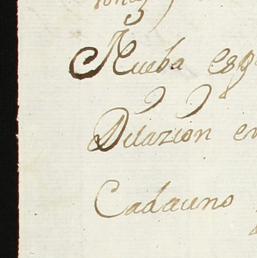 Nueba esq
Dilazion en
Cadauno